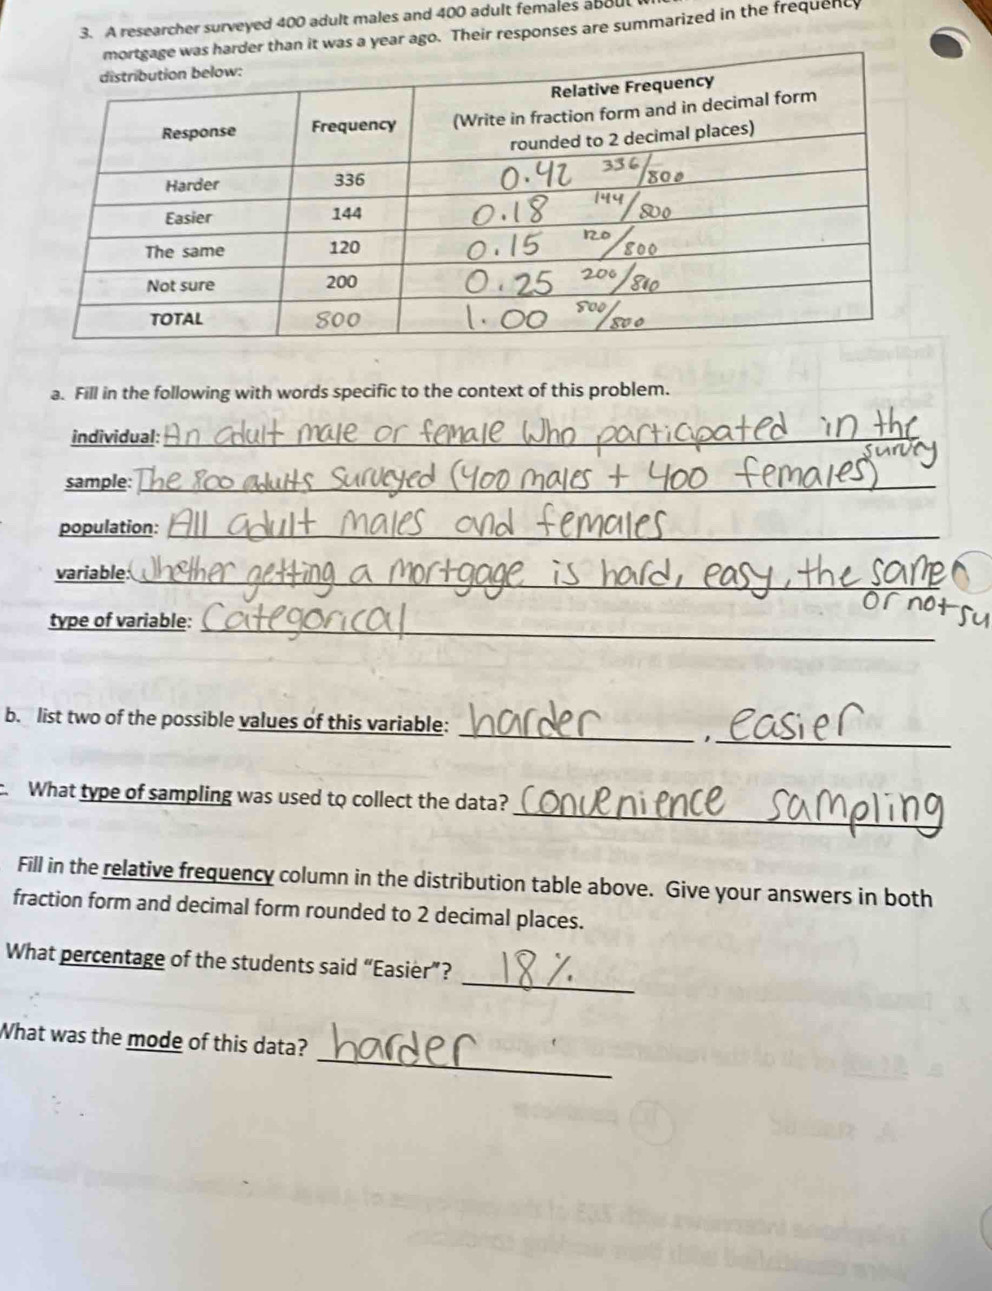 3. A researcher surveyed 400 adult males and 400 adult females about
mortgage was harder than it was a year ago. Their responses are summarized in the frequency
distribution below:
Response Frequency Relative Frequency
(Write in fraction form and in decimal form
rounded to 2 decimal places)
Harder 336 0.42 336/800
Easier 144 0.18 144/800
The same 120 0.15 120/800
Not sure 200 0.25 200/800
TOTAL 800 1.00 800/800
a. Fill in the following with words specific to the context of this problem.
individual: An adult male or female who participated in the
survey
sample: The 800 adults surveyed (400 males + 400 females)
population: All adult males and females
variable: Whether getting a mortgage is hard, easy, the same
or not su
type of variable: Categorical
b. list two of the possible values of this variable: harder, easier
c. What type of sampling was used to collect the data? Convenience sampling
Fill in the relative frequency column in the distribution table above. Give your answers in both
fraction form and decimal form rounded to 2 decimal places.
What percentage of the students said "Easier"? 18%
What was the mode of this data? harder